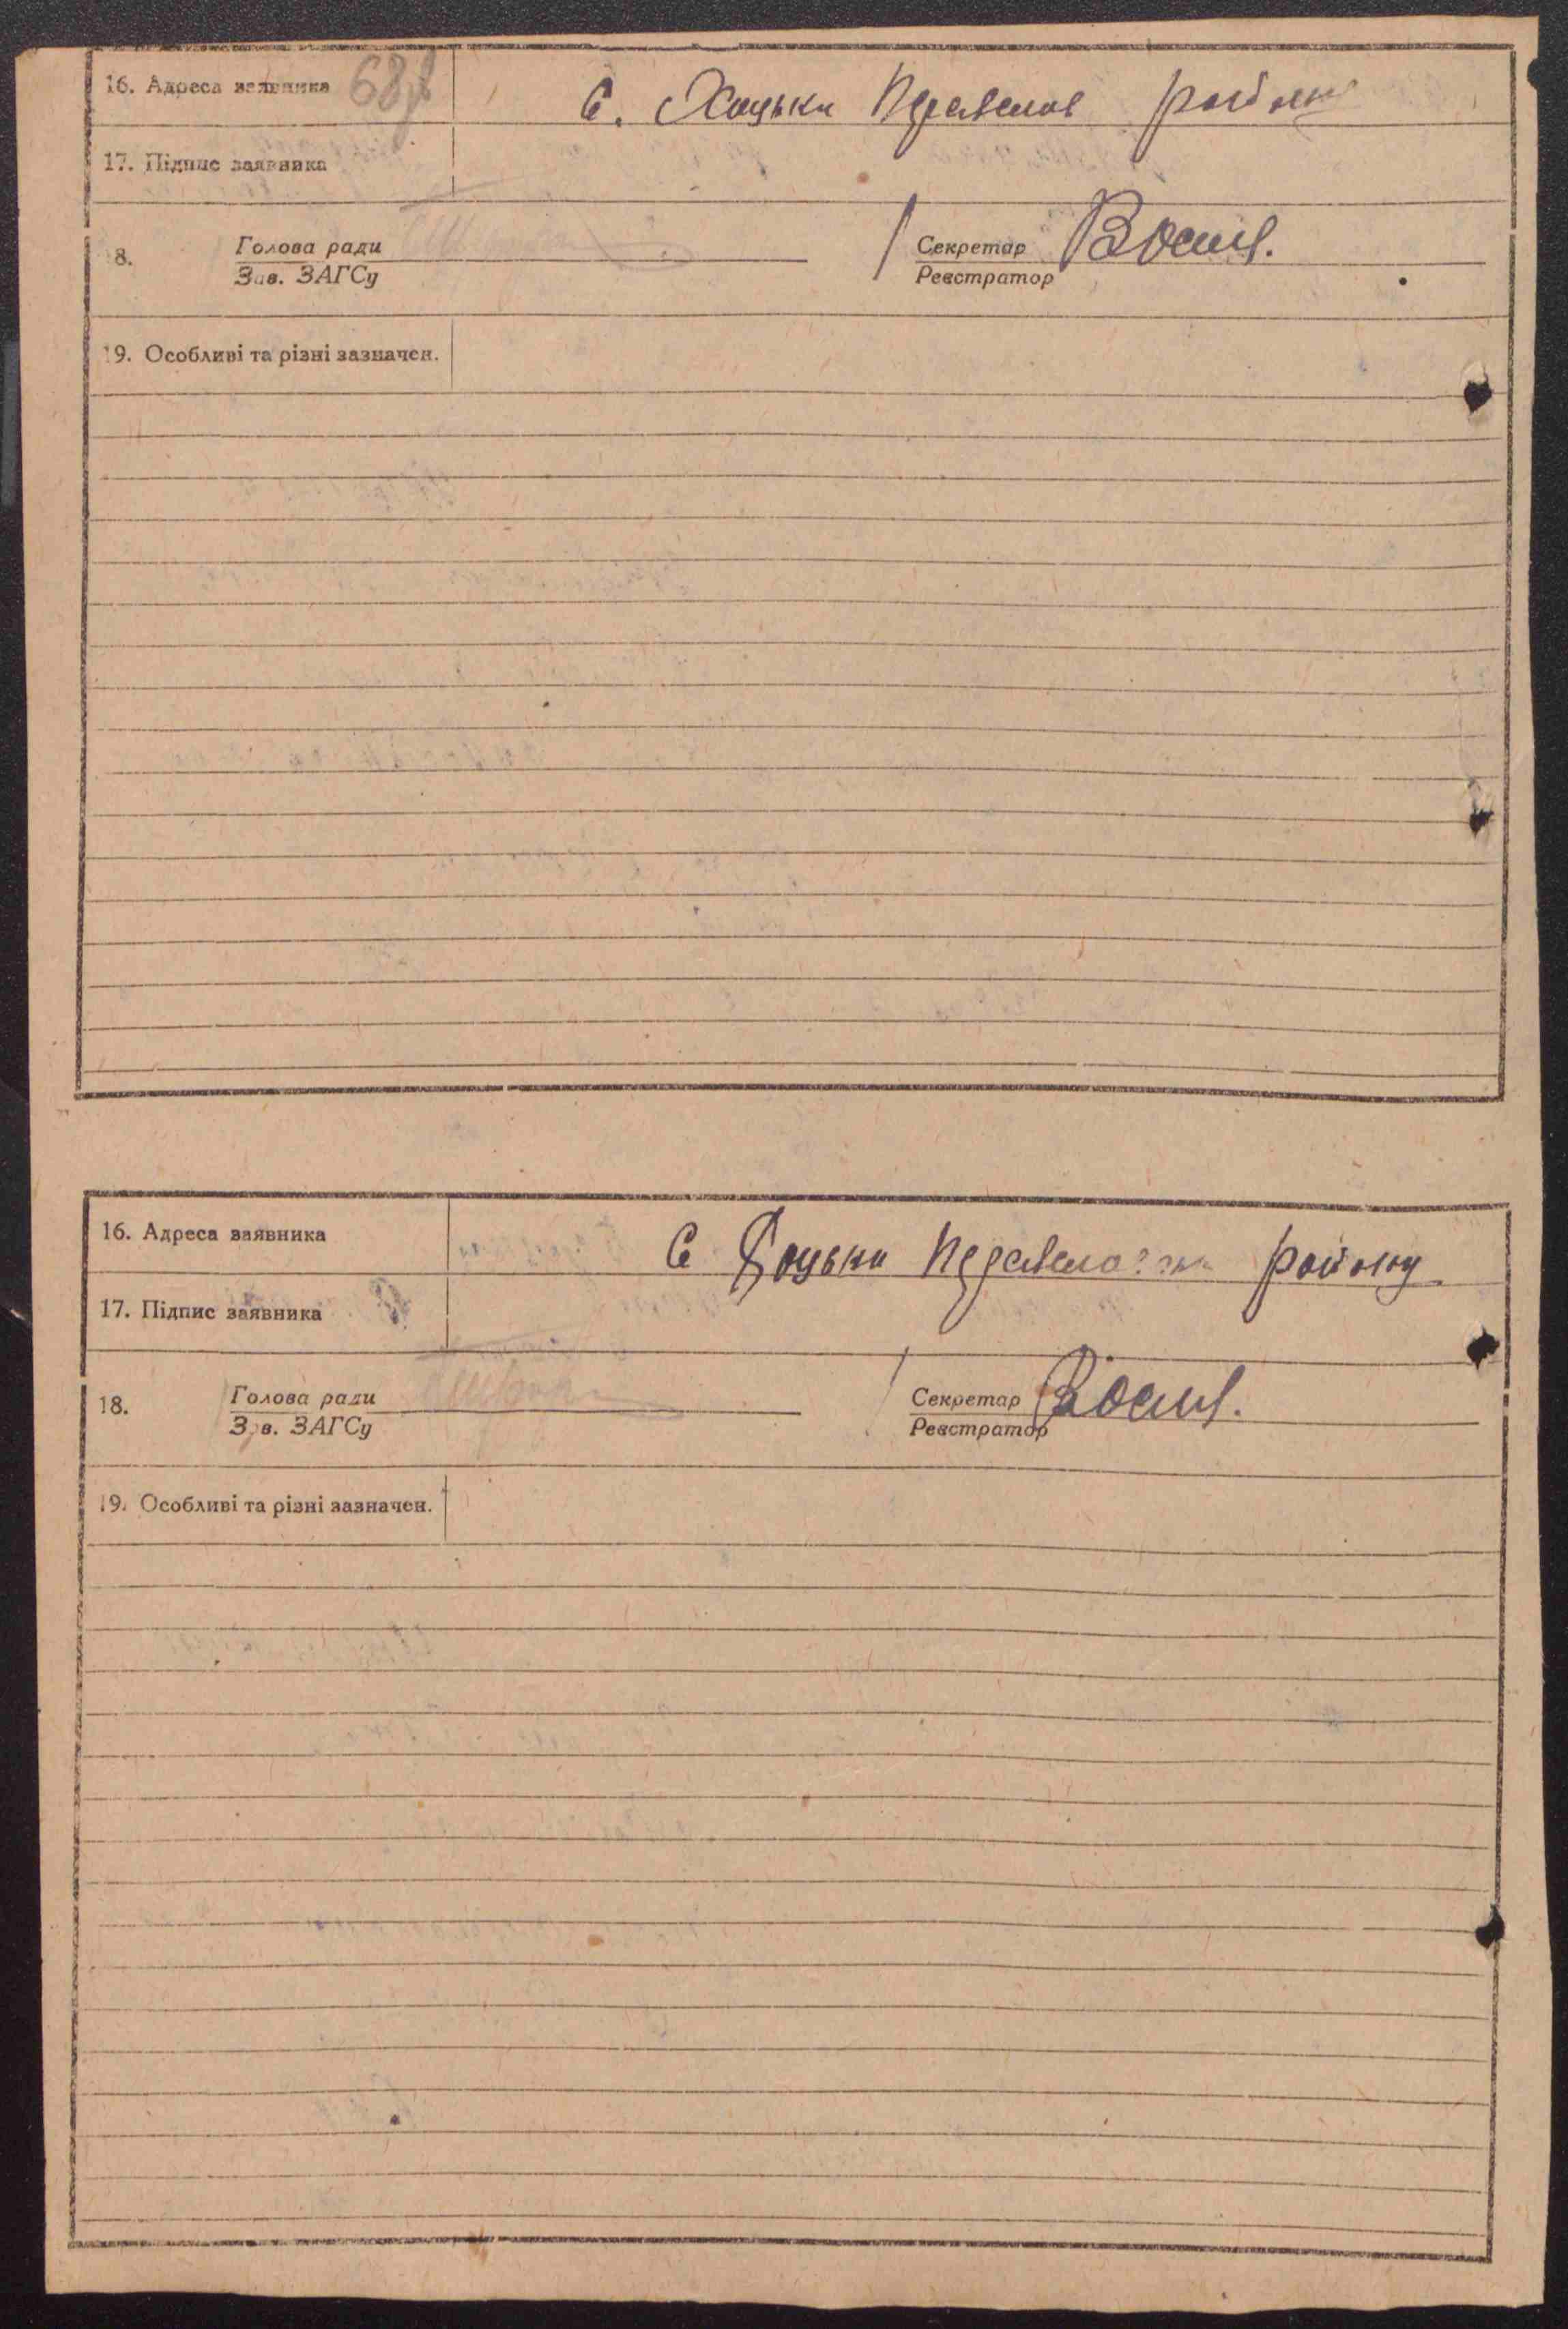 16. Адреса заявника
с. Хоцьки Переяслов району
17. Підпис заявника
18. Голова ради Секретар
Зав. ЗАГСу Реєстратор
19. Особливі та різні зазначен.
16. Адреса заявника
с Хоцьки району
17. Підпис заявника
18. Голова ради Секретар
Зав. ЗАГСу Реєстратор
19. Особливі та різні зазначен.